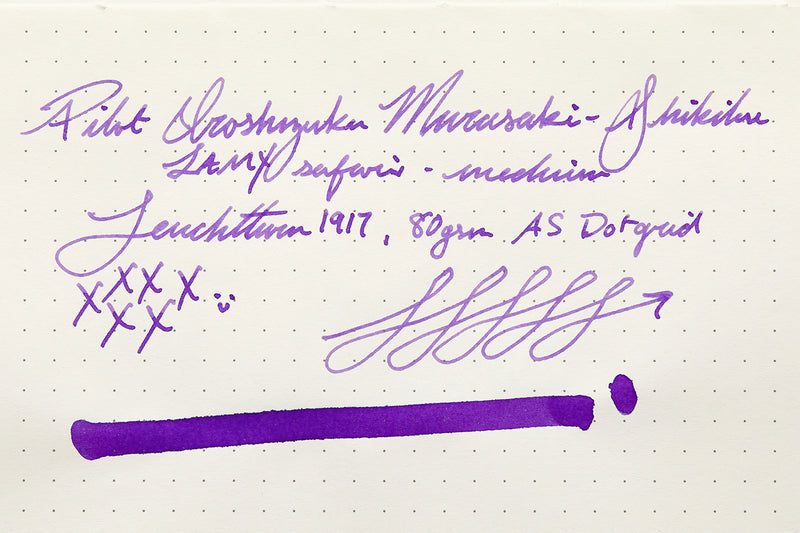 Pilot Iroshizuku Murasaki-Shikibu
LAMY safari - medium
Leuchtturm 1917, 80gsm A5 Dotgrid
X X X X
X X